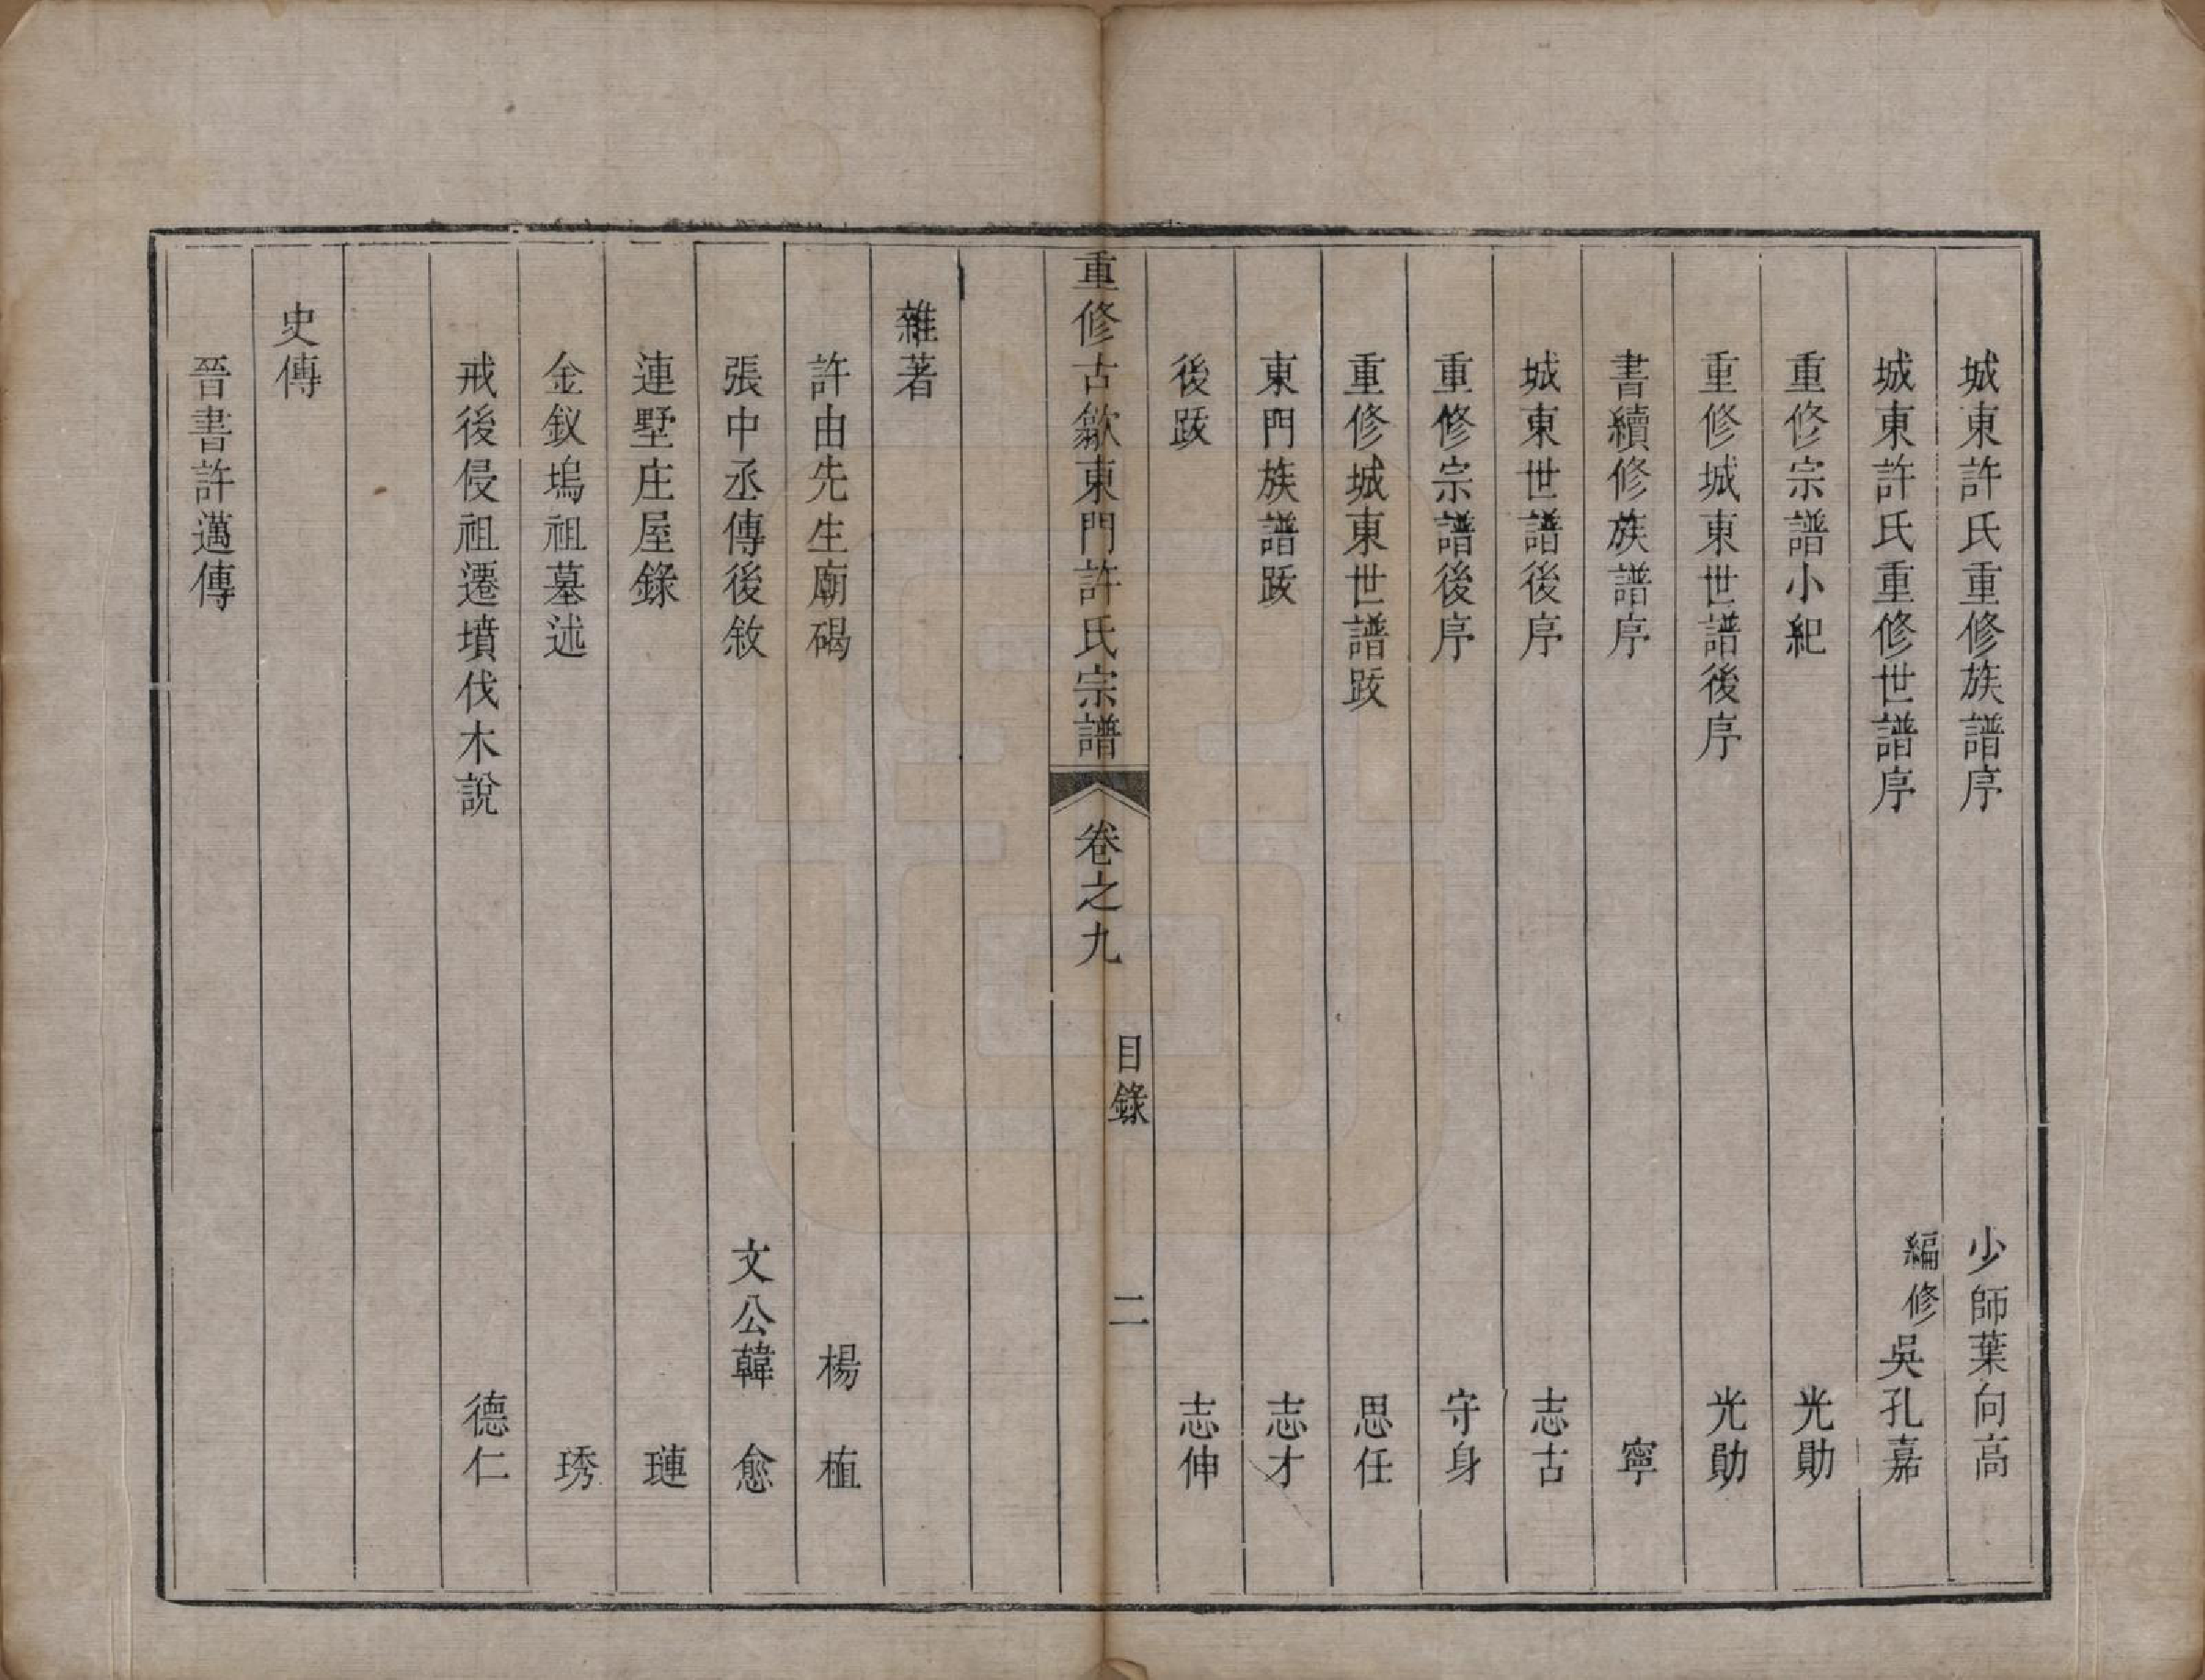 城東許氏重修族譜序 少師葉向高
城東許氏重修世譜序 編修吳孔嘉
重修宗譜小紀 光勛
重修城東世譜後序 光勛
書續修族譜序 寧
城東世譜後序 志古
重修宗譜後序 守身
重修城東世譜跋 思任
東門族譜跋 志才
後跋 志伸
重修古歙東門許氏宗譜 卷之九 目錄 二
雜著
許由先生廟碣 楊植
張中丞傳後敘 文公韓愈
連墅庄屋錄 璉
金釵塢祖墓述 琇
戒後侵祖遷墳伐木說 德仁
史傳
晉書許邁傳